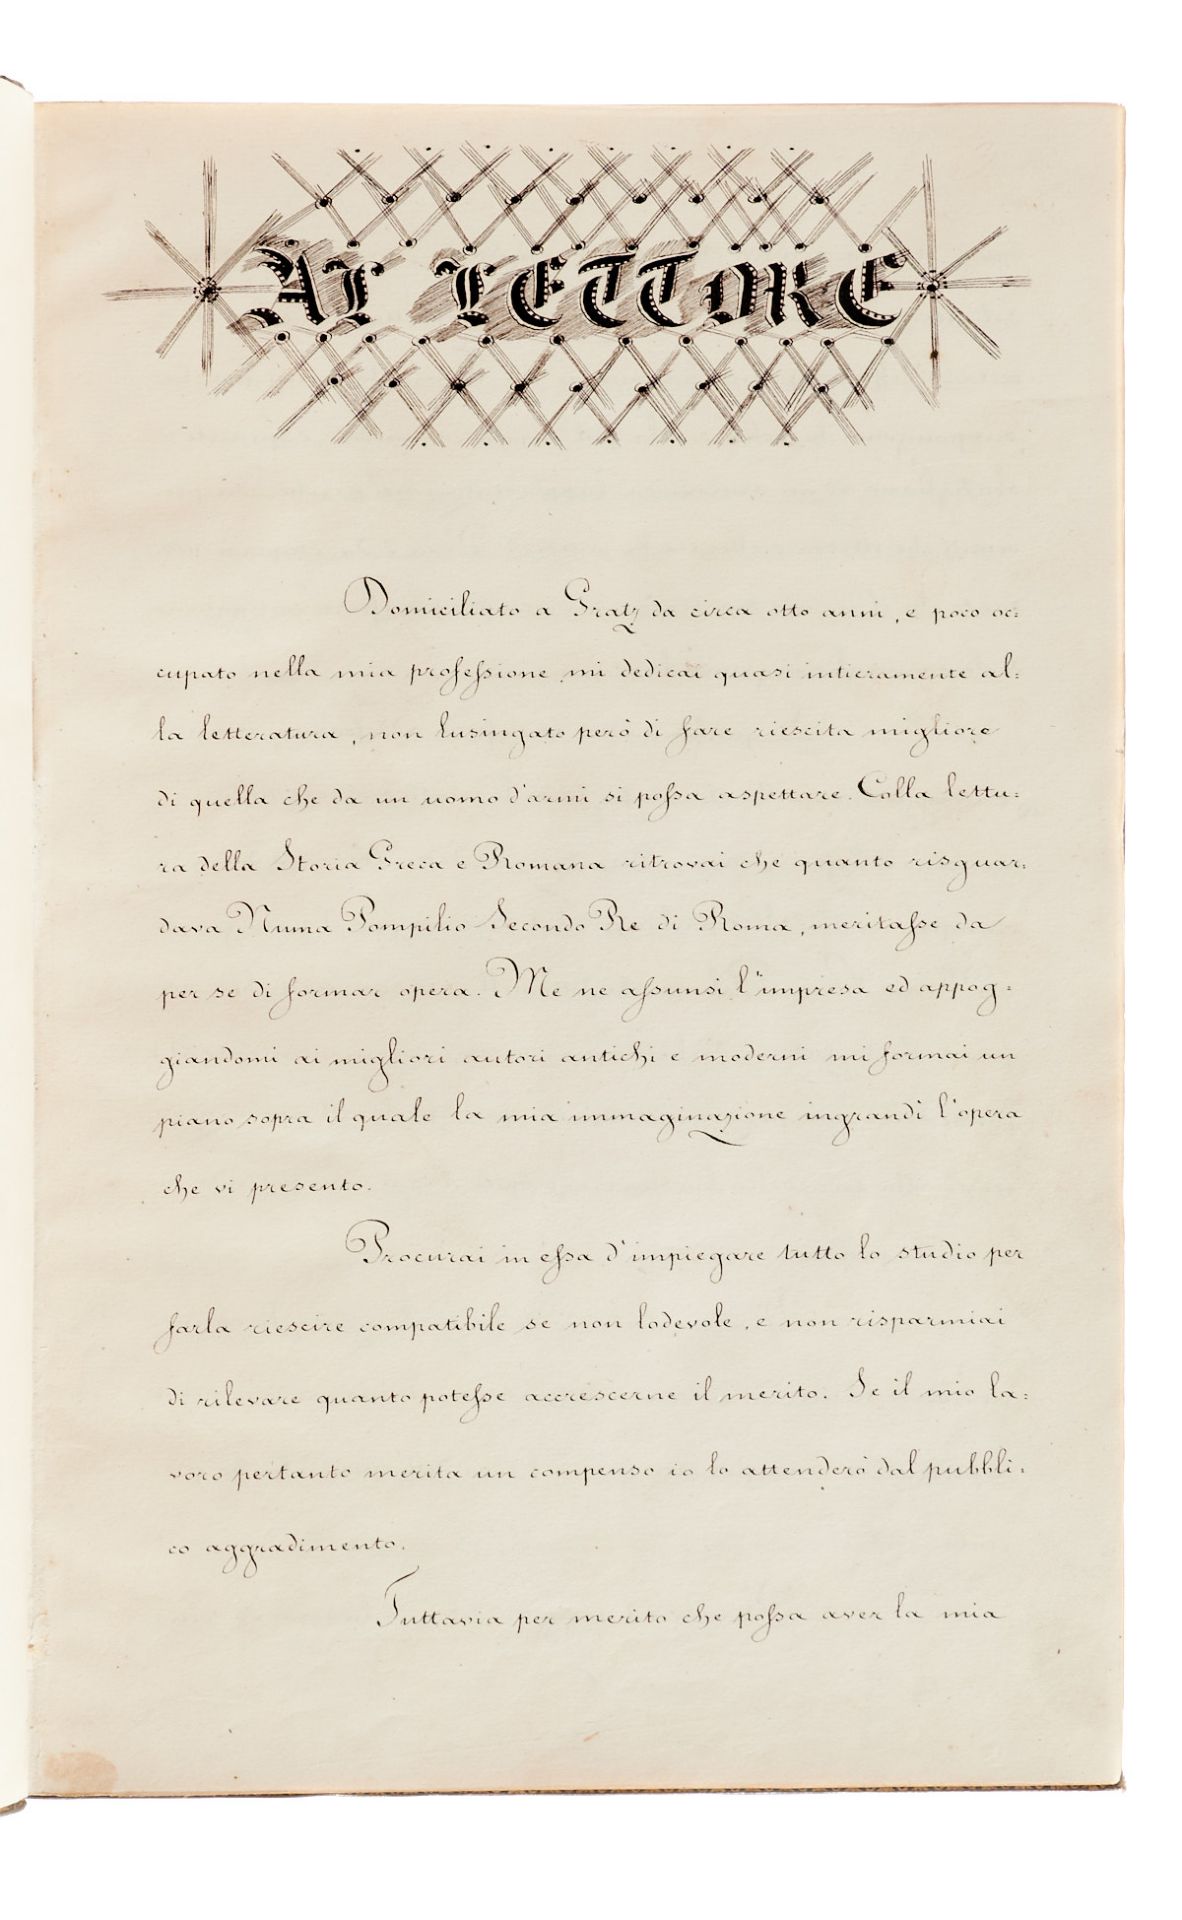 AL LETTORE
Domiciliato a Gratz da circa otto anni, e poco oc:
cupato nella mia profeſsione mi dedicai quasi intieramente al:
la letteratura, non lusingato però di fare riescita migliore
di quella che da un uomo d'armi si poſsa aspettare. Colla lettu:
ra della Storia Greca e Romana ritrovai che quanto risguar:
dava Numa Pompilio Secondo Re di Roma, meritaſse da
per se di formar opera. Me ne aſsunsi l'impresa ed appog:
giandomi ai migliori autori antichi e moderni mi formai un
piano sopra il quale la mia immaginazione ingrandì l'opera
che vi presento.
Procurai in eſsa d'impiegare tutto lo studio per
farla riescire compatibile se non lodevole, e non risparmiai
di rilevare quanto poteſse accrescerne il merito. Se il mio la:
voro pertanto merita un compenso io lo attenderò dal pubbli:
co aggradimento.
Tuttavia per merito che poſsa aver la mia